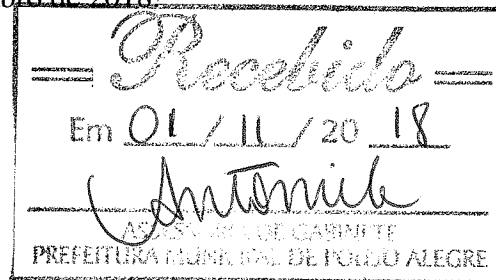 de 2018.
Recebido
Em 01 / 11 / 20 18
Antonio
ASSESSOR DE GABINETE
PREFEITURA MUNICIPAL DE POUSO ALEGRE